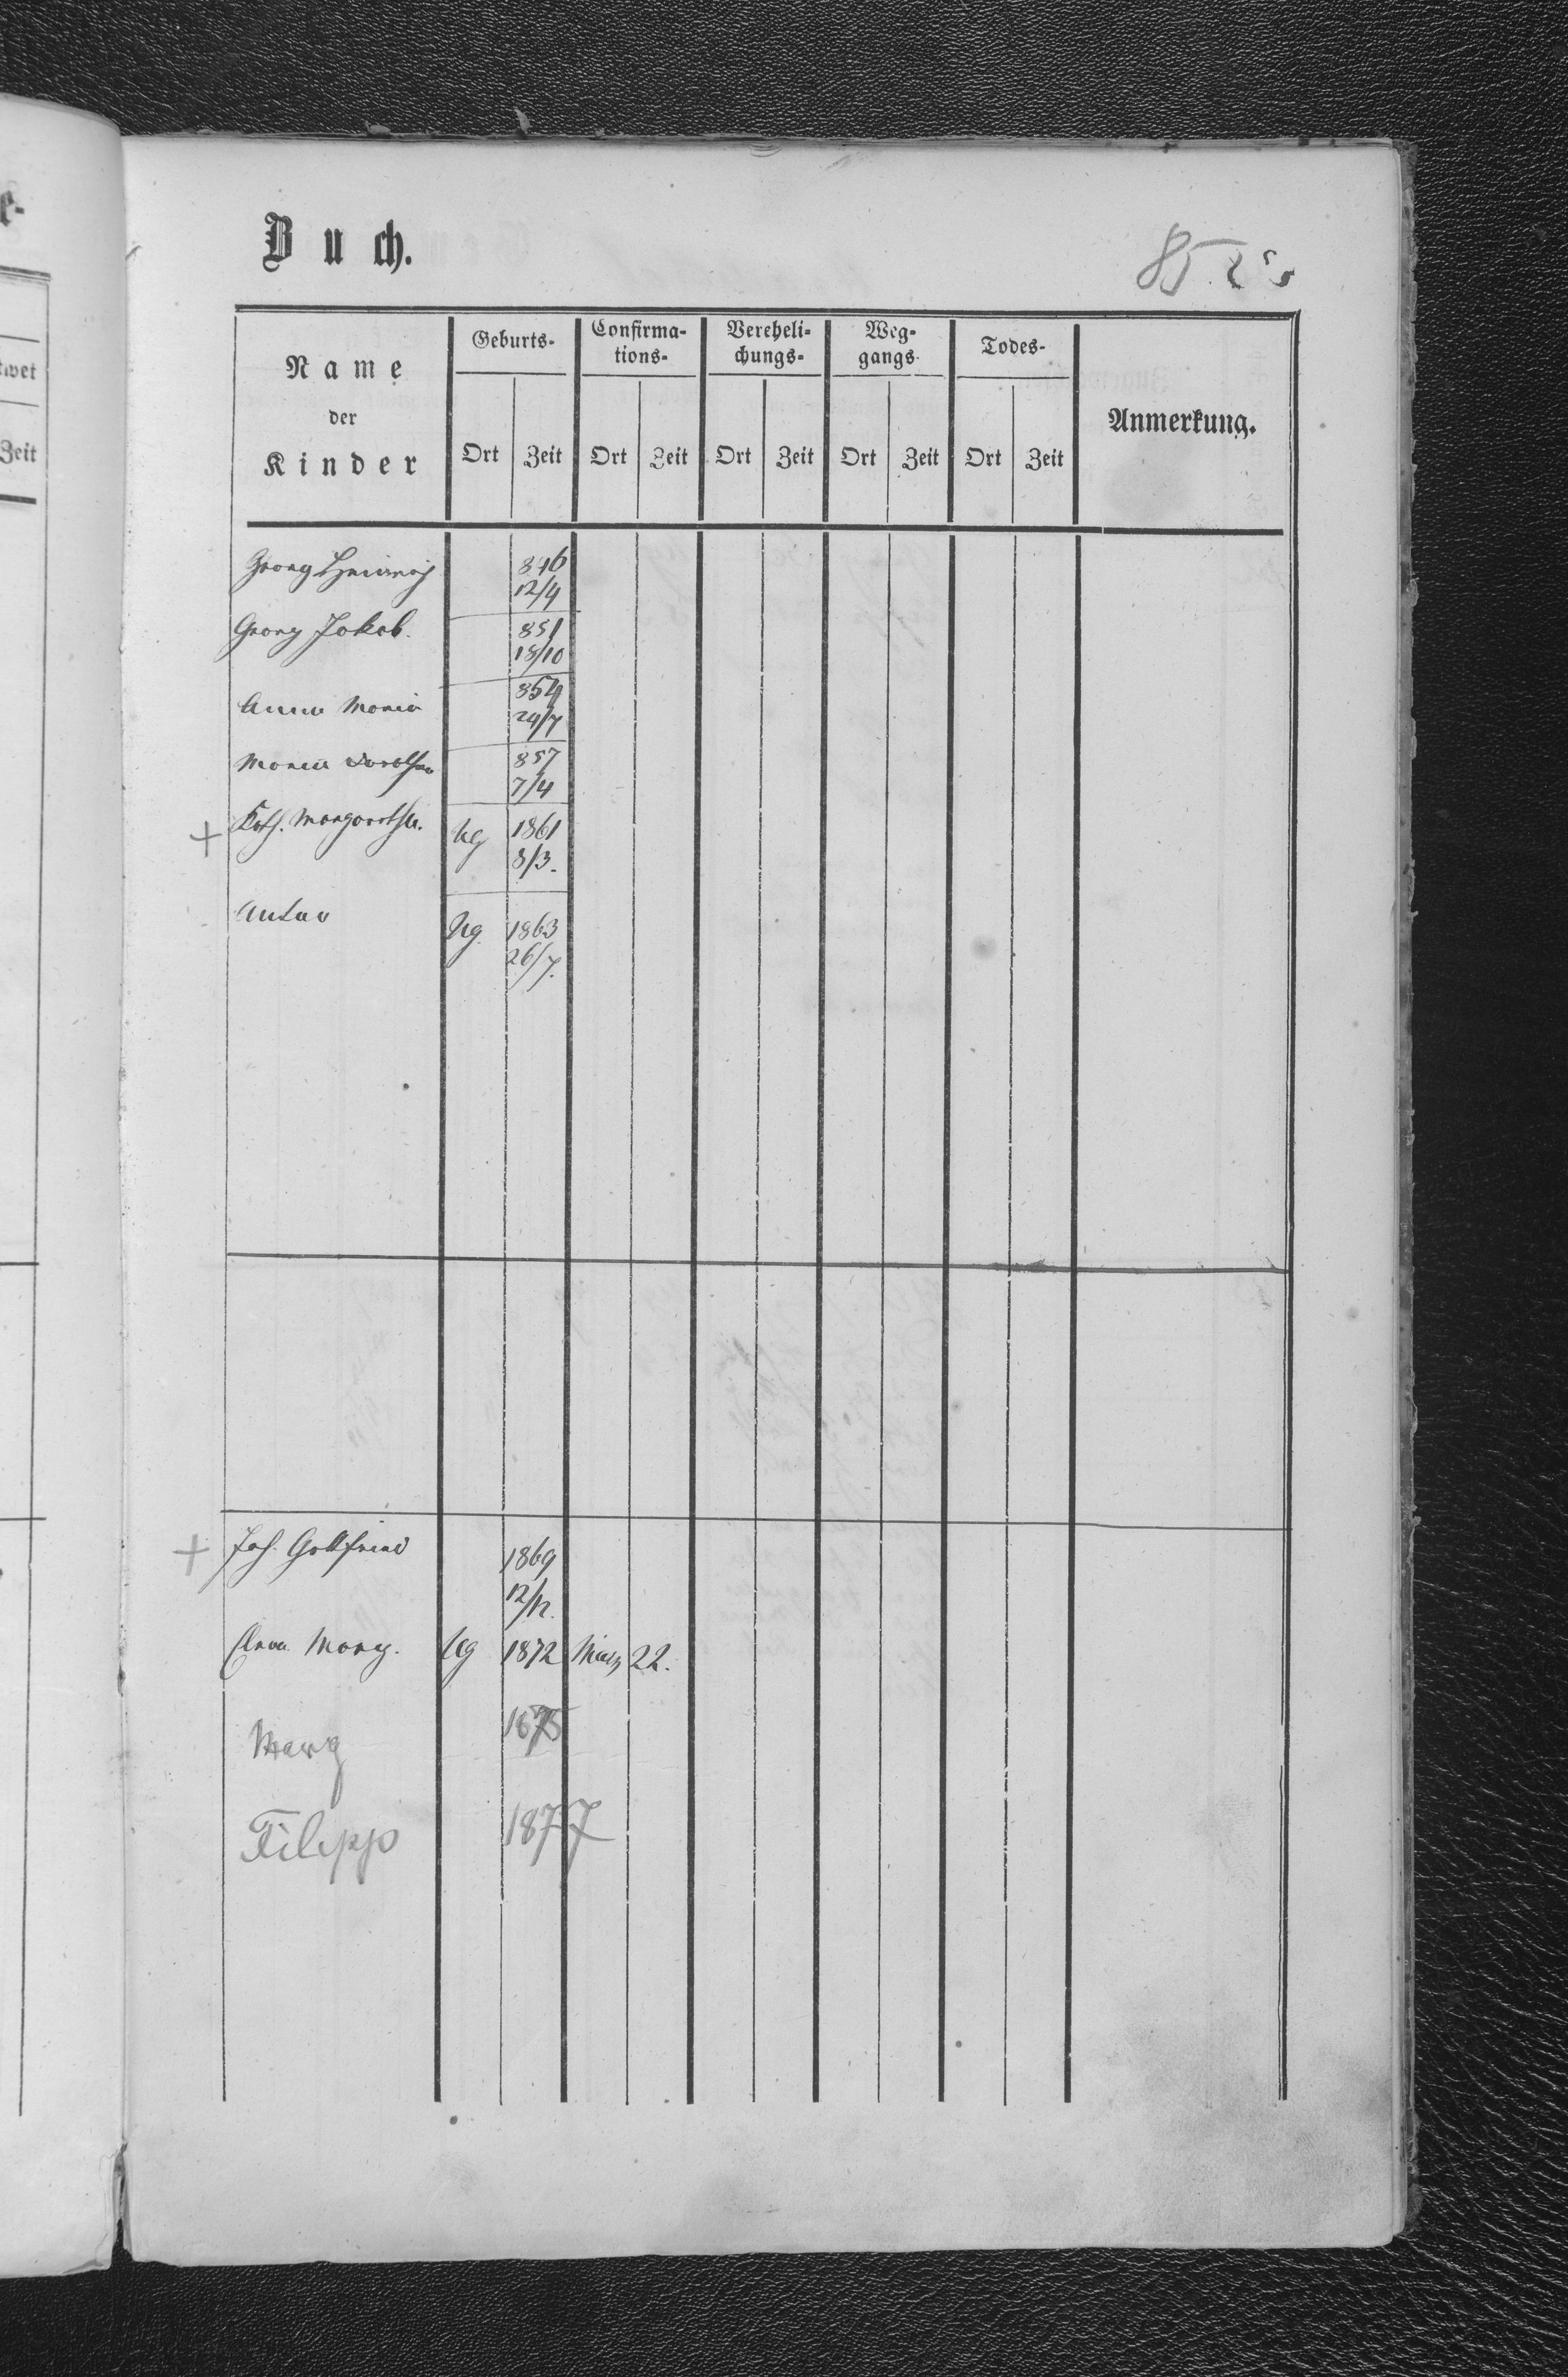 Buch.
85
Name der Kinder
Geburts-
Confirma-
tions-
Vereheli-
chungs-
Weg-
gangs
Todes-
Anmerkung.
Ort Zeit Ort Zeit Ort Zeit Ort Zeit Ort Zeit
Georg Heinrich 846
12/4
Georg Jakob. 851
18/10
Anna Maria 854
24/7
Maria Dorothea 857
7/4
+ Kath. Margaretha. Ug 1861
8/3.
Anton Ug. 1863
26/7.
+ Joh. Gottfried 1869
12/12.
Anna Marg. Ug 1872 März 22.
Marg 1875
Filipp 1877
e-
twet
Zeit